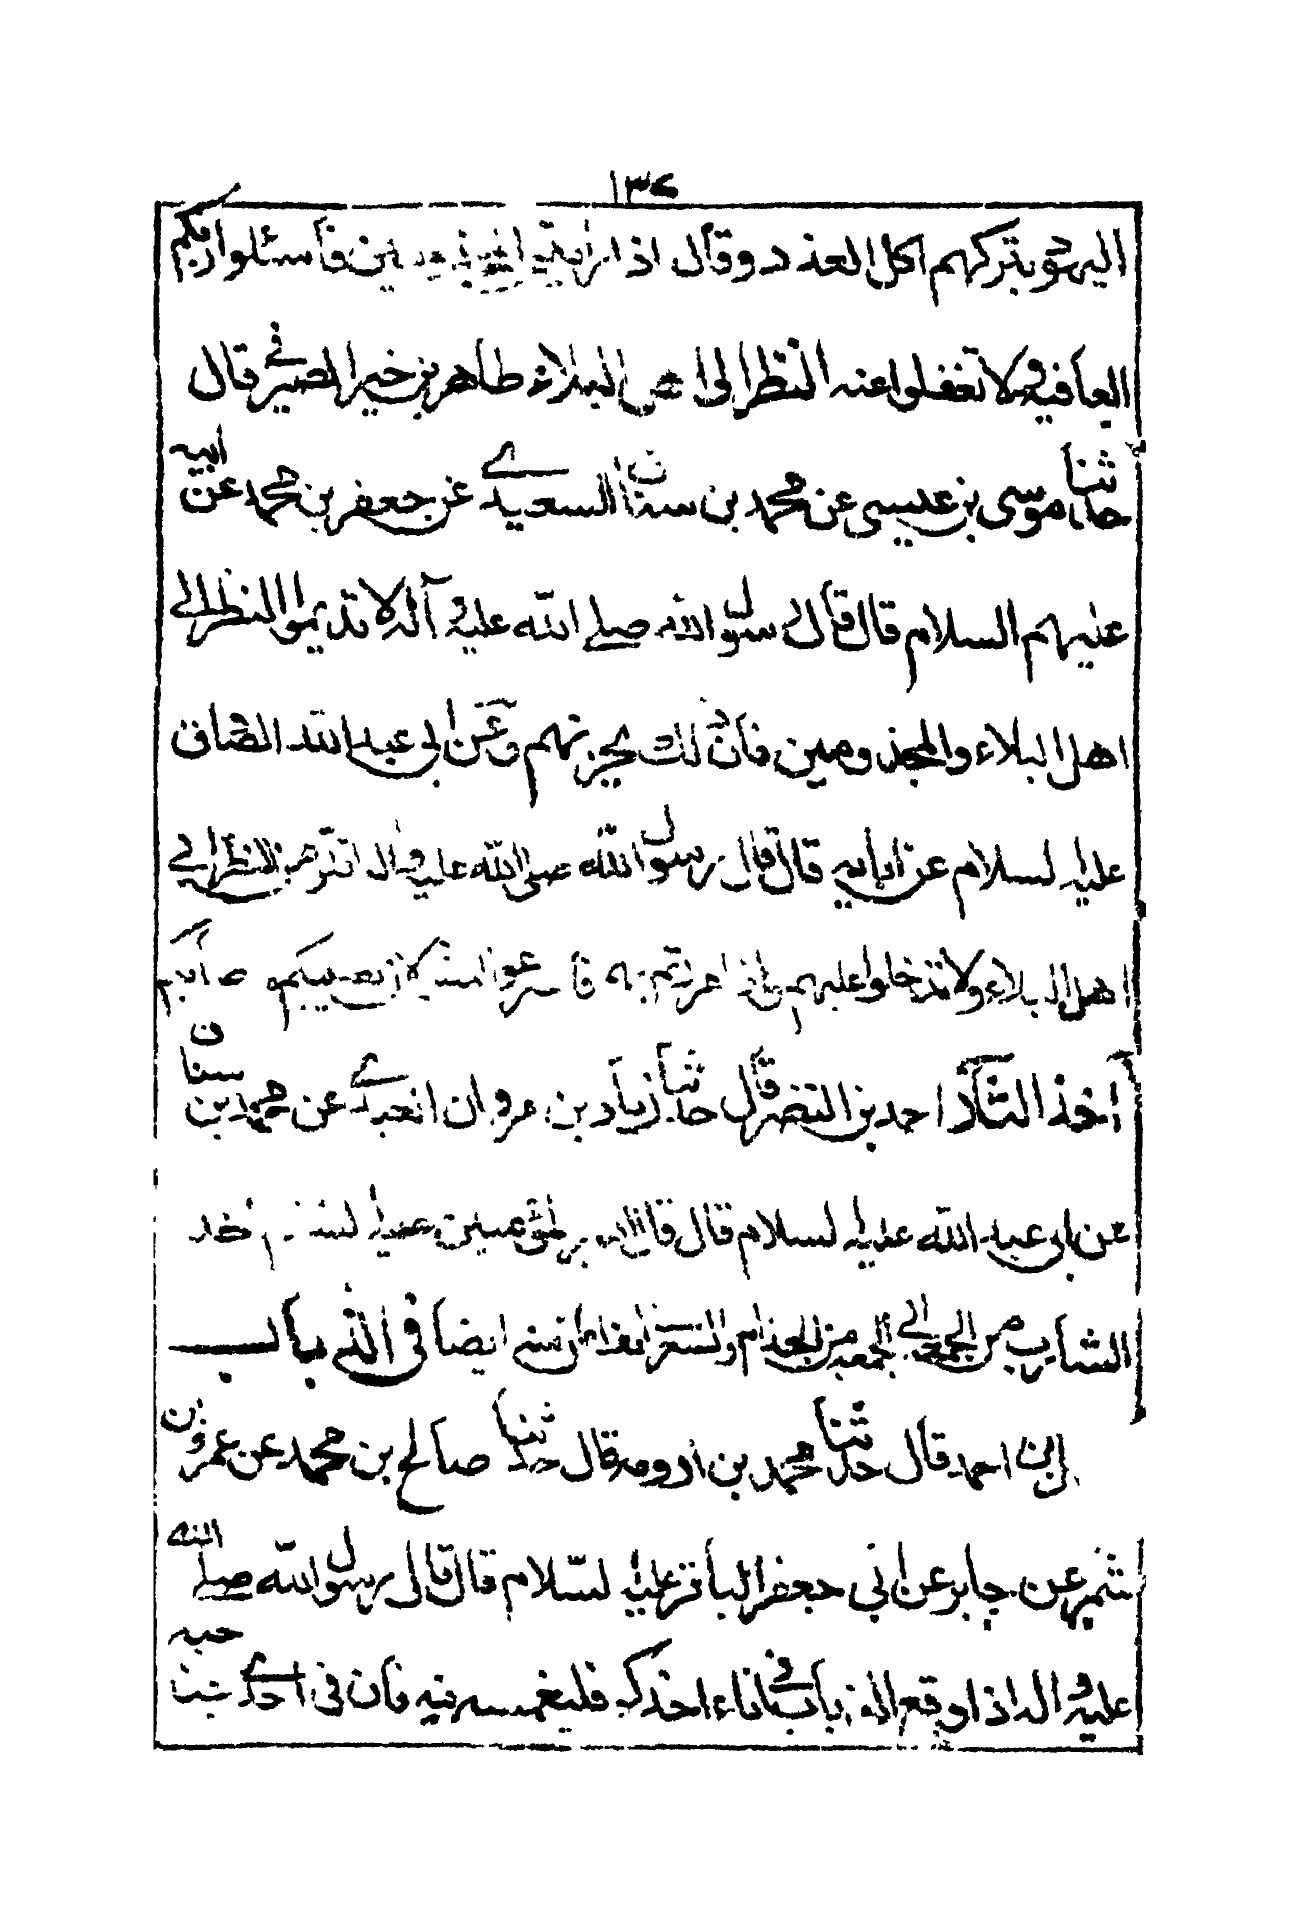 ١٣٤
اليهود بتركهم اكل الغدد وقال اذا رايتم المجذومين فأسئلوا ربكم
العافيه ولا تغفلوا عنه النظر الى اهل البلاء طاهر بن خير الصيرفي قال
حدثنا موسى بن عيسى عن محمد بن سنان السعيدے عن جعفر بن محمد عن ابيه
عليهم السلام قال قال رسول الله صلے الله عليه وآله لا تديموا النظر الے
اهل البلاء والمجذومين فأن ذلك يحزنهم وعن ابى عبد الله الصادق
عليه لسلام عن ابايه قال قال رسول الله صلى الله عليه واله النظر الے
اهل البلاء ولا تدخلوا عليهم واذا مررتم به فأسرعوا المشے لا يصيبكم ما اصابهم
أخذ الشأرب احمد بن النضر قال حدثنا زياد بن مروان العبدے عن محمد بن سنان
عن ابى عبد الله عليه لسلام قال قال امير المؤمنين عليه لسلام اخذ
الشأرب من الجمعة الى الجمعه من الجذام والشعر فى الانف امان منه ايضا فى الذبأب
ابن احمد قال حدثنا محمد بن ارومه قال حدثنا صالح بن محمد عن عمرو بن
شمر عن جابر عن ابي جعفر البأقر عليه لسّلام قال قال رسول الله صلے الله
عليه واله اذا وقع الذبأب فى اناء احدكم فليغمسه فيه فأن فى احدے جناحيه